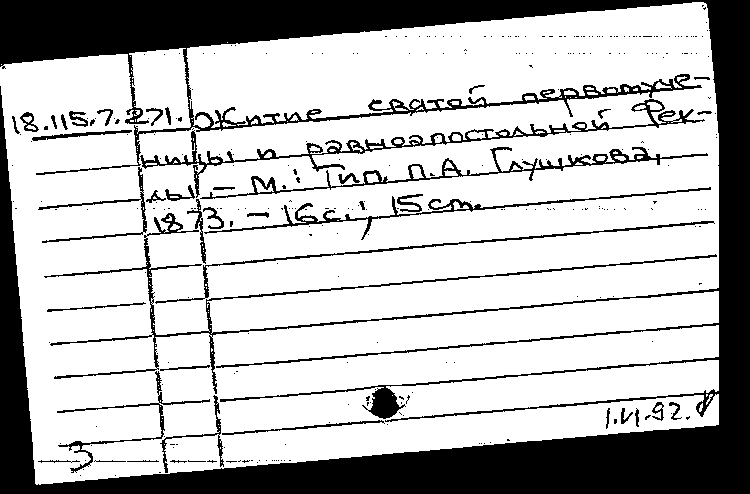 18.115.7.271. Житие святой первомуче-
ницы и равноапостольной Фек-
лы. - М.: Тип. П.А. Глушкова,
1873. - 16с.; 15см.
1.VI.92.
3